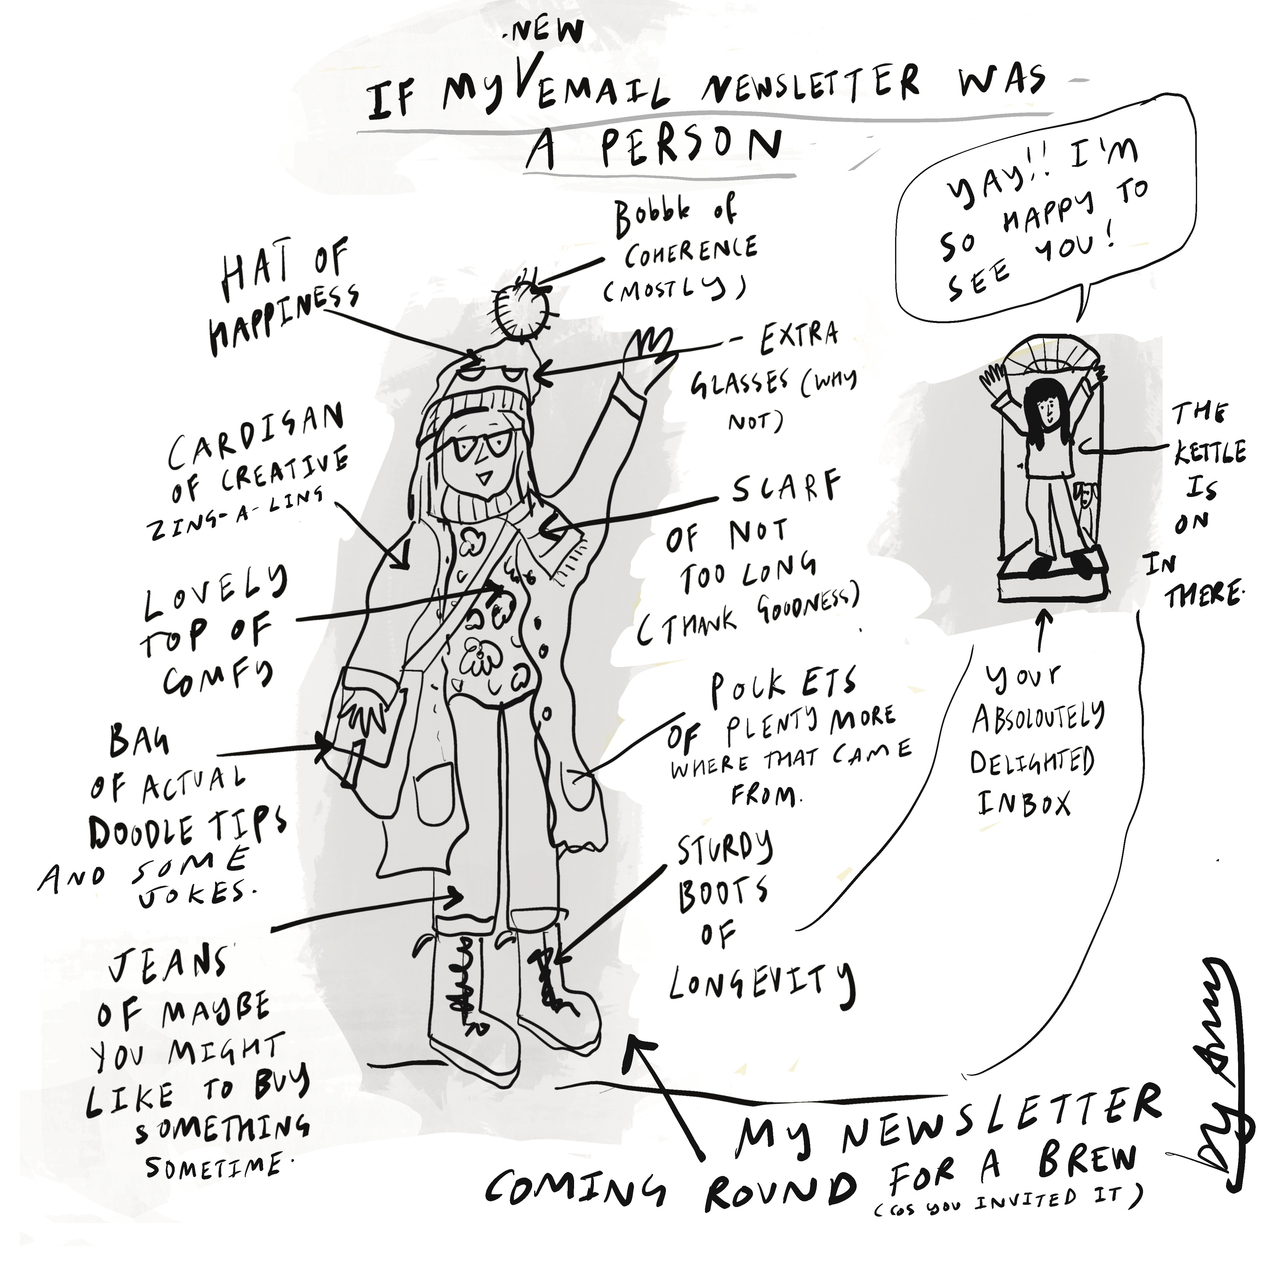 NEW
IF MY EMAIL NEWSLETTER WAS
A PERSON
YAY!! I'M
SO HAPPY TO
SEE YOU!
Bobble of
COHERENCE
(MOSTLY)
HAT OF
HAPPINESS
EXTRA
GLASSES (WHY
NOT)
CARDIGAN
OF CREATIVE
ZING-A-LING
SCARF
OF NOT
TOO LONG
(THANK GOODNESS)
THE
KETTLE
IS
ON
IN
THERE.
LOVELY
TOP OF
COMFY
YOUR
ABSOLOUTELY
DELIGHTED
INBOX
POCKETS
OF PLENTY MORE
WHERE THAT CAME
FROM.
BAG
OF ACTUAL
DOODLE TIPS
AND SOME
JOKES.
STURDY
BOOTS
OF
LONGEVITY
JEANS
OF MAYBE
YOU MIGHT
LIKE TO BUY
SOMETHING
SOMETIME.
MY NEWSLETTER
COMING ROUND FOR A BREW
(COS YOU INVITED IT)
by Amy